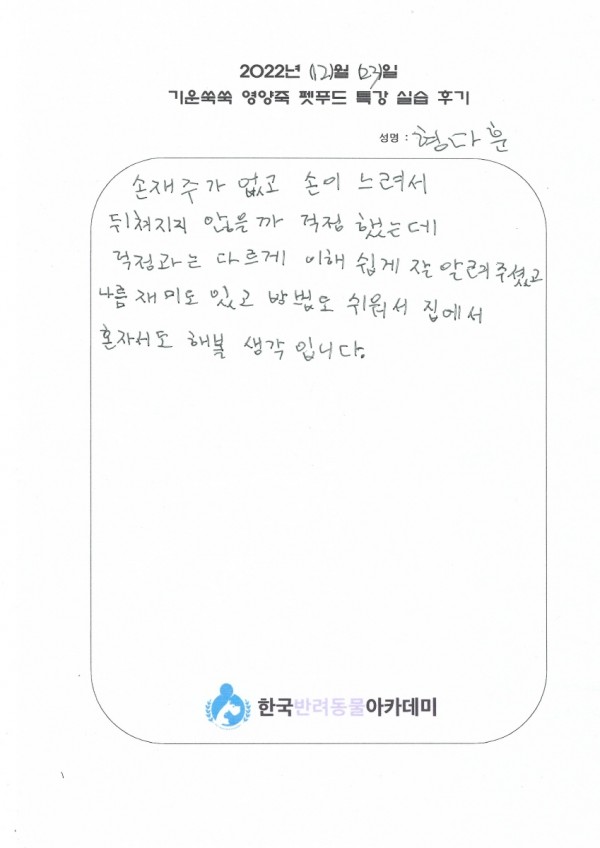 2022년 (12)월 (23)일
기운쑥쑥 영양죽 펫푸드 특강 실습 후기
성명 : 형다훈
손재주가 없고 손이 느려서
뒤쳐지지 않을까 걱정 했는데
걱정과는 다르게 이해 쉽게 잘 알려주셨고
나름 재미도 있고 방법도 쉬워서 집에서
혼자서도 해볼 생각입니다.
한국반려동물아카데미